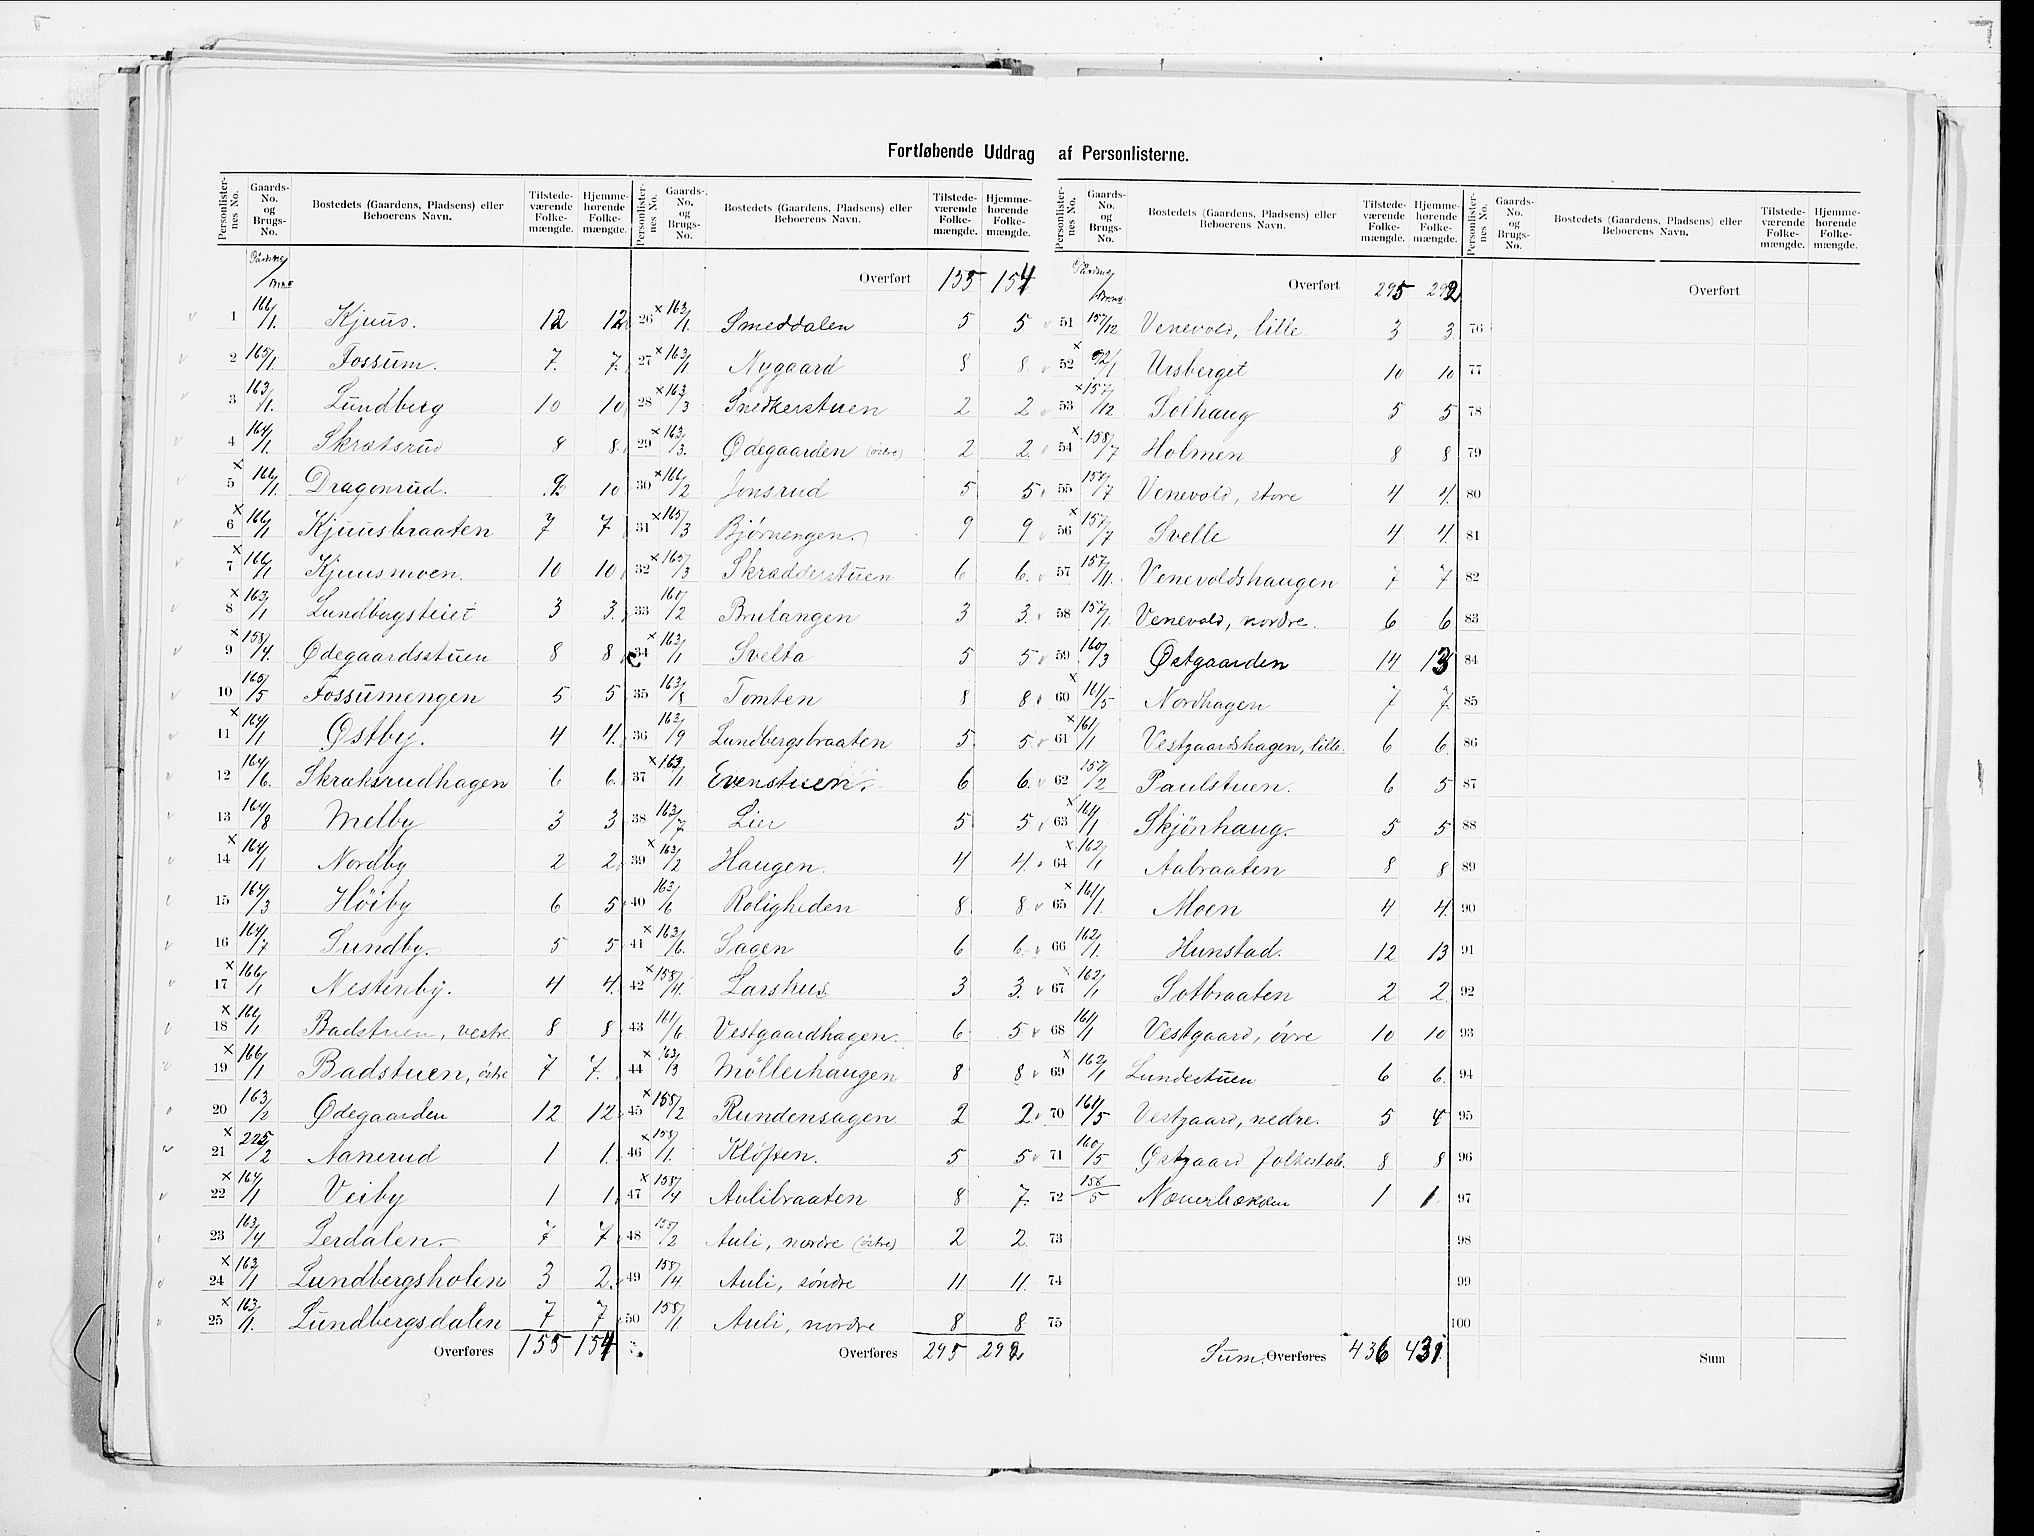 Fortløbende Uddrag af Personlisterne.
Personlister-nes No. Gaards-No. og Brugs-No. Bostedets (Gaardens, Pladsens) eller Beboerens Navn. Tilstede-værende Folke-mængde. Hjemme-hørende Folke-mængde.
1 166/1. Kjuus. 12 12
2 165/1. Fossum. 7. 7.
3 163/1. Lundberg 10 10
4 164/1. Skratsrud 8 8.
x 5 166/1. Dragonrud. 9 10
x 6 166/1 Kjuusbraaten 7 7
x 7 166/1 Kjuusmoen. 10 10
x 8 163/1 Lundbergsteiet 3 3.
x 9 158/4. Ødegaardsstuen 8 8
10 165/5 Fossumengen 5 5
x 11 164/1 Østby. 4 4.
12 164/6. Skratsrudhagen 6 6
13 164/8 Melby 3 3
x 14 164/1 Nordby 2 2
15 164/3 Höiby 6 5
16 164/7 Sundby. 5 5
x 17 166/1 Nestenby. 4 4.
x 18 166/1 Badstuen, vestre 8 8
x 19 166/1 Badstuen, östre 7 7.
20 163/2 Ødegaarden 12 12
x 21 225/2 Aanerud 1 1.
x 22 164/1 Veiby 1 1
23 163/4 Lerdalen. 7 7
x 24 163/1 Lundbergsholen 3 2.
x 25 163/1. Lundbergsdalen 7 7
Overføres 155 154
Personlister-nes No. Gaards-No. og Brugs-No. Bostedets (Gaardens, Pladsens) eller Beboerens Navn. Tilstede-værende Folke-mængde. Hjemme-hørende Folke-mængde.
Overført 155 154
26 x 163/1. Smeddalen 5 5
27 x 163/1 Nygaard 8 8
28 x 163/3 Snedkerstuen 2 2
29 x 163/3. Ødegaarden (östre) 2 2.
30 x 166/2 Jonsrud 5 5
31 x 165/3 Bjørnengen. 9 9
32 x 165/3 Skrædderstuen 6 6.
33 160/2 Brutangen 3 3.
34 x 163/1 Svelta 5 5
35 163/8 Tomten 8 8
36 163/9 Lundbergsbraaten 5. 5
37 x 163/1 Evenstuen. 6 6.
38 163/7 Lier 5 5
39 x 163/2 Haugen. 4 4.
40 163/6 Roligheden 8 8.
41 x 163/6. Sagen 6 6.
42 x 158/4. Larshus 3 3.
43 161/6 Vestgaardhagen. 6 5
44 x 163/3 Möllerhaugen 8 8
45 x 158/2 Rundensagen 2 2.
46 x 158/1. Kløften. 5 5
47 x 158/4 Aulibraaten 8 7.
48 158/2 Auli, nordre (östre) 2 2
49 158/4. Auli, söndre 11 11.
50 158/1 Auli, nordre 8 8
Overføres 295 292
Personlister-nes No. Gaards-No. og Brugs-No. Bostedets (Gaardens, Pladsens) eller Beboerens Navn. Tilstede-værende Folke-mængde. Hjemme-hørende Folke-mængde.
Overført 295 292
51 157/12 Venevold, lille 3 3.
x 52 Ursberget 10 10
53 x 157/12 Solhaug 5 5
x 54 158/7 Holmen 8 8
55 157/7 Venevold, store 4 4.
x 56 157/7 Svelle 4 4
57 157/11. Venevoldshaugen 7 7
58 157/1. Venevold, nordre. 6 6
59 160/3 Østgaarden 14 13
x 60 161/5 Nordhagen 7 7.
x 61 161/1 Vestgaardshagen, lille. 6 6.
62 157/2 Paulstuen. 6 5
x 63 161/1 Skjönhaug. 5 5
x 64 162/1 Aabraaten 8 8
x 65 161/1. Moen 4 4.
66 162/1. Hunstad. 12 13
x 67 162/1 Sotbraaten 2 2
68 161/1 Vestgaard, övre 10 10
x 69 162/1 Lundestuen 6 6.
70 161/5 Vestgaard, nedre. 5 4
71 160/5 Østgaard folkeskole. 8 8
72 156/5 Næverbækken 1 1
73
74
75
Sum. Overføres 436 431
Personlister-nes No. Gaards-No. og Brugs-No. Bostedets (Gaardens, Pladsens) eller Beboerens Navn. Tilstede-værende Folke-mængde. Hjemme-hørende Folke-mængde.
Overført
76
77
78
79
80
81
82
83
84
85
86
87
88
89
90
91
92
93
94
95
96
97
98
99
100
Sum